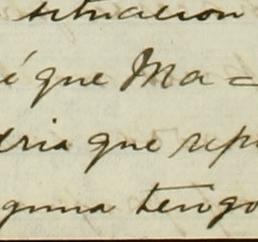 situacion
é que Ma=
dria que repr
guna tengo